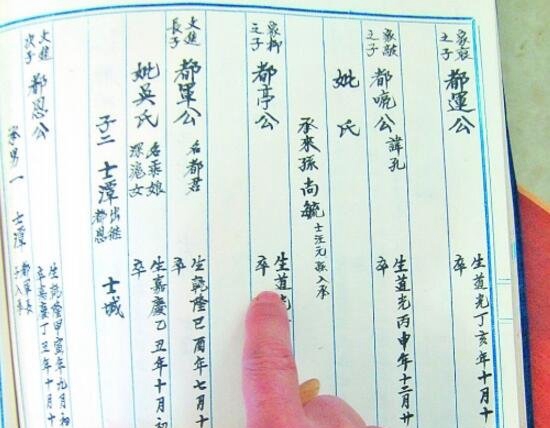 家毅之子
都運公
生道光丁亥年十月十
卒
家駿之子
都唬公
諱孔
生道光丙申年十二月廿
卒
妣氏
承來孫尚毓
士汪元孫入承
家柳之子
都亭公
生道
卒
文進長子
都軍公
名都君
生乾隆己酉年七月十
卒
妣吳氏
名乘娘
深滬女
生嘉慶乙丑年十月初
卒
子二
士潭
出繼都恩
士城
文進次子
都恩公
生乾隆甲寅年九月初
卒嘉慶丁丑年十月十
承男一
士潭
都軍長子入承